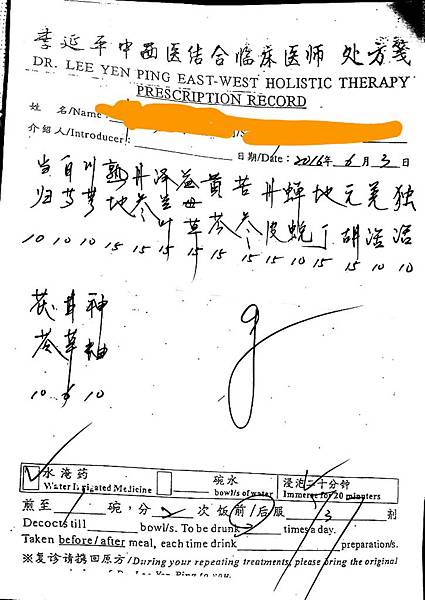 李延平中西医结合临床医师 处方笺
DR. LEE YEN PING EAST-WEST HOLISTIC THERAPY
PRESCRIPTION RECORD
姓 名/Name:
介绍人/Introducer:
日期/Date: 2016年 6 月 3 日
当归
白芍
川芎
熟地
丹参
泽兰叶
益母草
黄芩
苦参
丹皮
蝉蜕
地丁
元胡
羌活
独活
10 10 10 15 15 15 15 15 15 15 10 15 15 10 10
茯苓
甘草
10 6 10
水淹药
Water Irrigated Medicine
碗水
bowl/s of water
浸泡二十分钟
Immerse for 20 minuters
煎至 1 碗, 分 2 次饭前/后服 3 剂
Decocts till bowl/s. To be drunk times a day.
Taken before/after meal, each time drink preparation/s.
※复诊请携回原方/During your repeating treatments, please bring the original
of Dr. Lee Yen Ping to you.